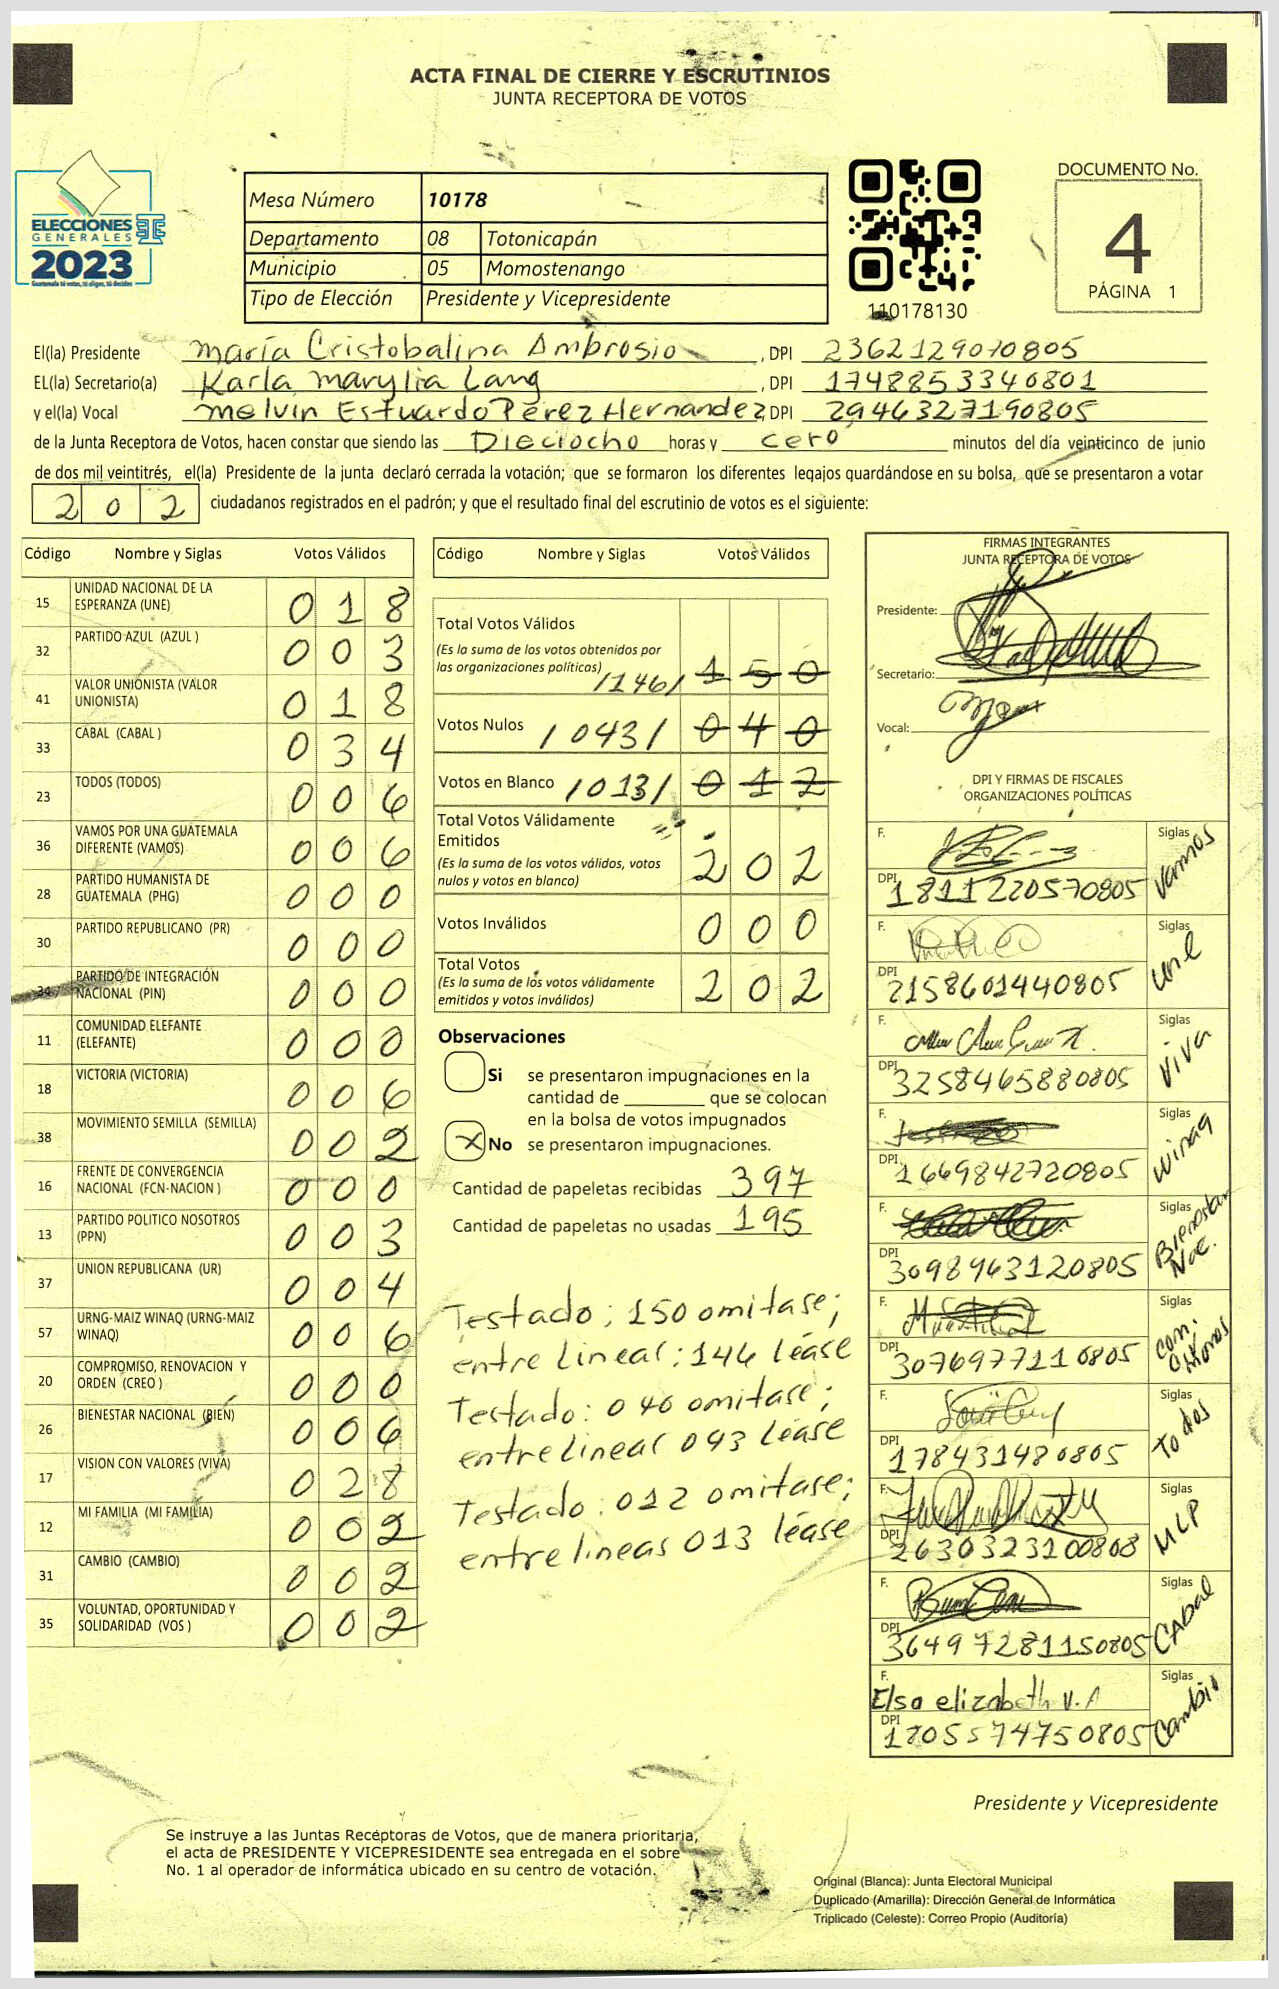 ACTA FINAL DE CIERRE Y ESCRUTINIOS
JUNTA RECEPTORA DE VOTOS
ELECCIONES
GENERALES
2023
Guatemala tú votas, tú eliges, tú decides
Mesa Número 10178
Departamento 08 Totonicapán
Municipio 05 Momostenango
Tipo de Elección Presidente y Vicepresidente
110178130
DOCUMENTO No.
4
PÁGINA 1
El(la) Presidente María Cristobalina Ambrosio, DPI 2362129070805
EL(la) Secretario(a) Karla Marylia Lang, DPI 1748853340801
y el(la) Vocal Melvin Estuardo Pérez Hernandez DPI 2946327190805
de la Junta Receptora de Votos, hacen constar que siendo las Dieciocho horas y cero minutos del día veinticinco de junio
de dos mil veintitrés, el(la) Presidente de la junta declaró cerrada la votación; que se formaron los diferentes legajos guardándose en su bolsa, que se presentaron a votar
202 ciudadanos registrados en el padrón; y que el resultado final del escrutinio de votos es el siguiente:
Código Nombre y Siglas Votos Válidos
15 UNIDAD NACIONAL DE LA ESPERANZA (UNE) 018
32 PARTIDO AZUL (AZUL ) 003
41 VALOR UNIONISTA (VALOR UNIONISTA) 018
33 CABAL (CABAL ) 034
23 TODOS (TODOS) 006
36 VAMOS POR UNA GUATEMALA DIFERENTE (VAMOS) 006
28 PARTIDO HUMANISTA DE GUATEMALA (PHG) 000
30 PARTIDO REPUBLICANO (PR) 000
34 PARTIDO DE INTEGRACIÓN NACIONAL (PIN) 000
11 COMUNIDAD ELEFANTE (ELEFANTE) 000
18 VICTORIA (VICTORIA) 006
38 MOVIMIENTO SEMILLA (SEMILLA) 002
16 FRENTE DE CONVERGENCIA NACIONAL (FCN-NACION ) 000
13 PARTIDO POLITICO NOSOTROS (PPN) 003
37 UNION REPUBLICANA (UR) 004
57 URNG-MAIZ WINAQ (URNG-MAIZ WINAQ) 006
20 COMPROMISO, RENOVACION Y ORDEN (CREO ) 000
26 BIENESTAR NACIONAL (BIEN) 006
17 VISION CON VALORES (VIVA) 028
12 MI FAMILIA (MI FAMILIA) 002
31 CAMBIO (CAMBIO) 002
35 VOLUNTAD, OPORTUNIDAD Y SOLIDARIDAD (VOS ) 002
Código Nombre y Siglas Votos Válidos
Total Votos Válidos
(Es la suma de los votos obtenidos por
las organizaciones políticas) /146/ 150
Votos Nulos /043/ 040
Votos en Blanco /013/ 012
Total Votos Válidamente
Emitidos
(Es la suma de los votos válidos, votos
nulos y votos en blanco) 202
Votos Inválidos 000
Total Votos
(Es la suma de los votos válidamente
emitidos y votos inválidos) 202
Observaciones
Si se presentaron impugnaciones en la
cantidad de ________ que se colocan
en la bolsa de votos impugnados
X No se presentaron impugnaciones.
Cantidad de papeletas recibidas 397
Cantidad de papeletas no usadas 195
Testado; 150 omitase;
entre lineas; 146 léase
Testado: 040 omitase;
entre lineas 043 léase
Testado: 012 omitase;
entre lineas 013 léase
FIRMAS INTEGRANTES
JUNTA RECEPTORA DE VOTOS
Presidente:
Secretario:
Vocal:
DPI Y FIRMAS DE FISCALES
ORGANIZACIONES POLÍTICAS
F. Siglas Vamos
DPI 1811220570805
F. Siglas une
DPI 2158601440805
F. Siglas Viva
DPI 3258465880805
F. Siglas winaq
DPI 1669842720805
F. Siglas Bienestar Nac.
DPI 3098963120805
F. Siglas
DPI 3076977110805
F. Siglas Todos
DPI 178431480805
F. Siglas MLP
DPI 2630323100808
F. Siglas CABal
DPI 36497281150805
F. Elsa elizabeth V. A Siglas Cambio
DPI 1705574750805
Presidente y Vicepresidente
Se instruye a las Juntas Receptoras de Votos, que de manera prioritaria,
el acta de PRESIDENTE Y VICEPRESIDENTE sea entregada en el sobre
No. 1 al operador de informática ubicado en su centro de votación.
Original (Blanca): Junta Electoral Municipal
Duplicado (Amarilla): Dirección General de Informática
Triplicado (Celeste): Correo Propio (Auditoría)